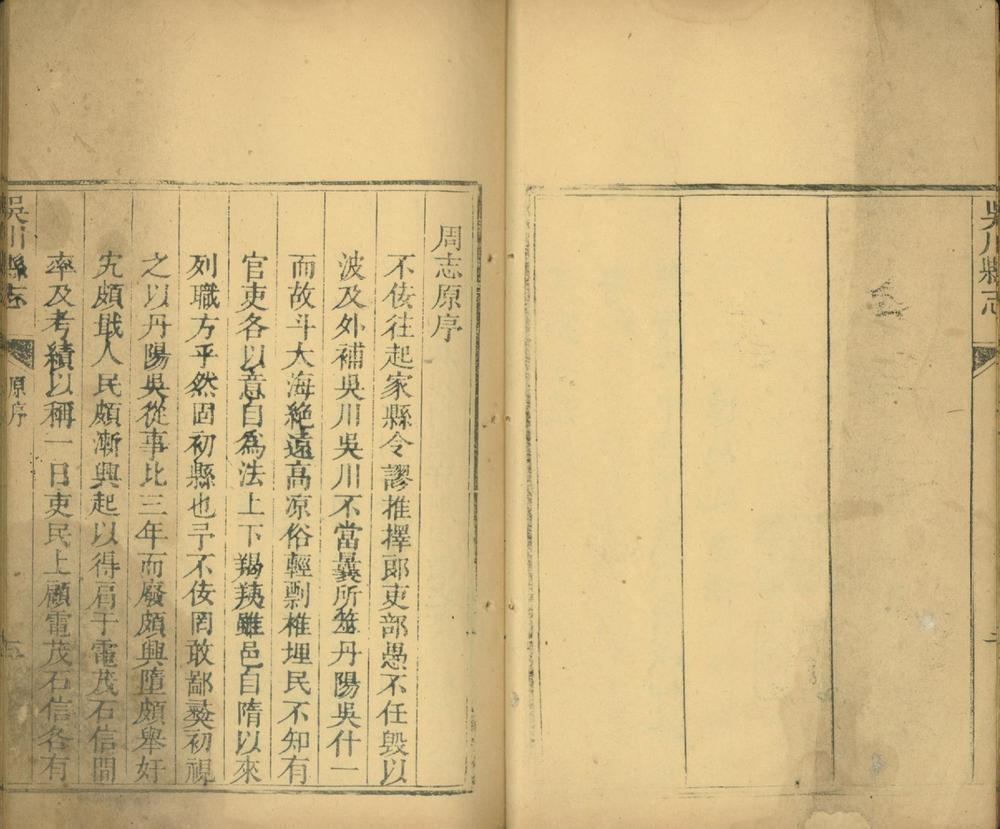 吳川縣志
周志原序
不佞往起家縣令謬推擇郎吏部愚不任毀以
波及外補吳川吳川不當曩所筮丹陽吳什一
而故斗大海絶遠高凉俗輕剽椎埋民不知有
官吏各以意自為法上下羯羠雖邑自隋以來
列職方乎然固初縣也予不佞罔敢鄙夷初視
之以丹陽吳從事比三年而廢頗興墮頗舉奸
宄頗戢人民頗漸興起以得肩于電茂石信間
率及考績以稱一日吏民上顧電茂石信各有
吳川縣志
原序